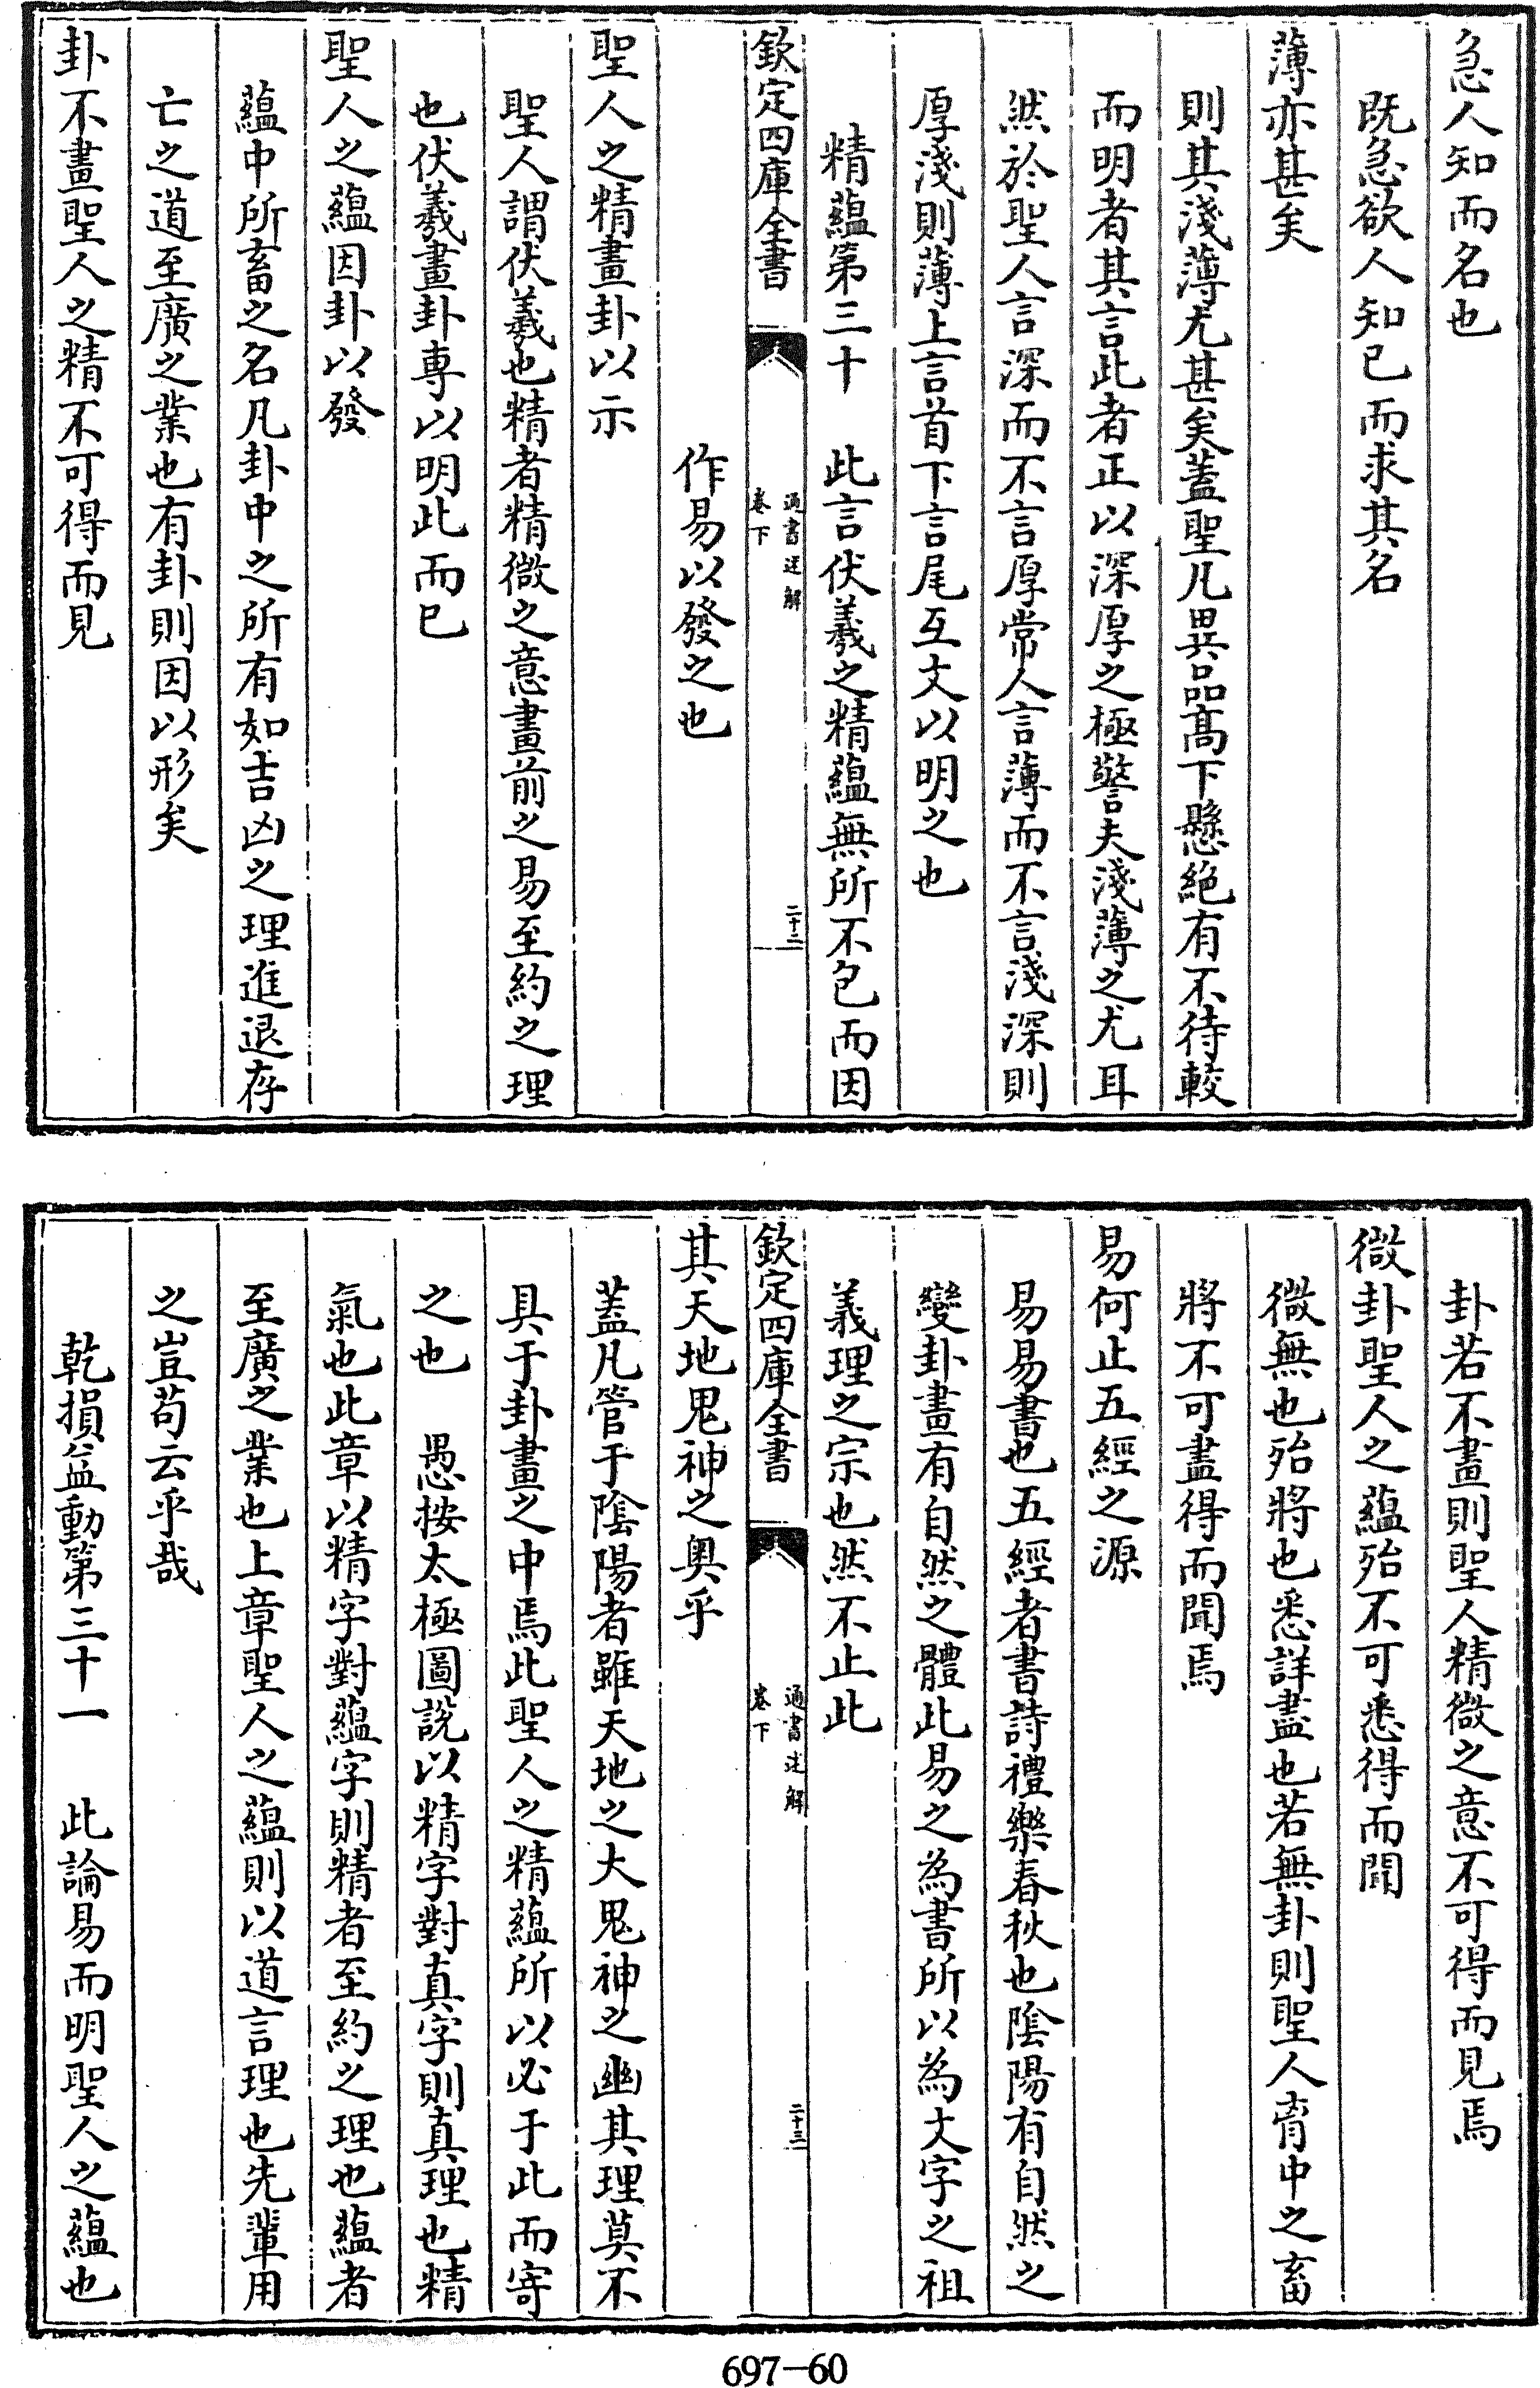 急人知而名也
既急欲人知已而求其名
薄亦甚矣
則其淺薄尤甚矣蓋聖凡異品髙下懸絶有不待較
而明者其言此者正以深厚之極警夫淺薄之尤耳
然於聖人言深而不言厚常人言薄而不言淺深則
厚淺則薄上言首下言尾互文以明之也
精蘊第三十 此言伏羲之精蘊無所不包而因
欽定四庫全書
通書述解
卷下
二十二
作易以發之也
聖人之精畫卦以示
聖人謂伏羲也精者精微之意畫前之易至約之理
也伏羲畫卦専以明此而已
聖人之蘊因卦以發
蘊中所畜之名凡卦中之所有如吉凶之理進退存
亡之道至廣之業也有卦則因以形矣
卦不畫聖人之精不可得而見
卦若不畫則聖人精微之意不可得而見焉
微卦聖人之蘊殆不可悉得而聞
微無也殆將也悉詳盡也若無卦則聖人胷中之畜
將不可盡得而聞焉
易何止五經之源
易易書也五經者書詩禮樂春秋也陰陽有自然之
變卦畫有自然之體此易之為書所以為文字之祖
義理之宗也然不止此
欽定四庫全書
通書述解
卷下
二十三
其天地鬼神之奥乎
蓋凡管于陰陽者雖天地之大鬼神之幽其理莫不
具于卦畫之中焉此聖人之精蘊所以必于此而寄
之也 愚按太極圖說以精字對真字則真理也精
氣也此章以精字對蘊字則精者至約之理也蘊者
至廣之業也上章聖人之蘊則以道言理也先輩用
之豈苟云乎哉
乾損益動第三十一 此論易而明聖人之蘊也
697-60